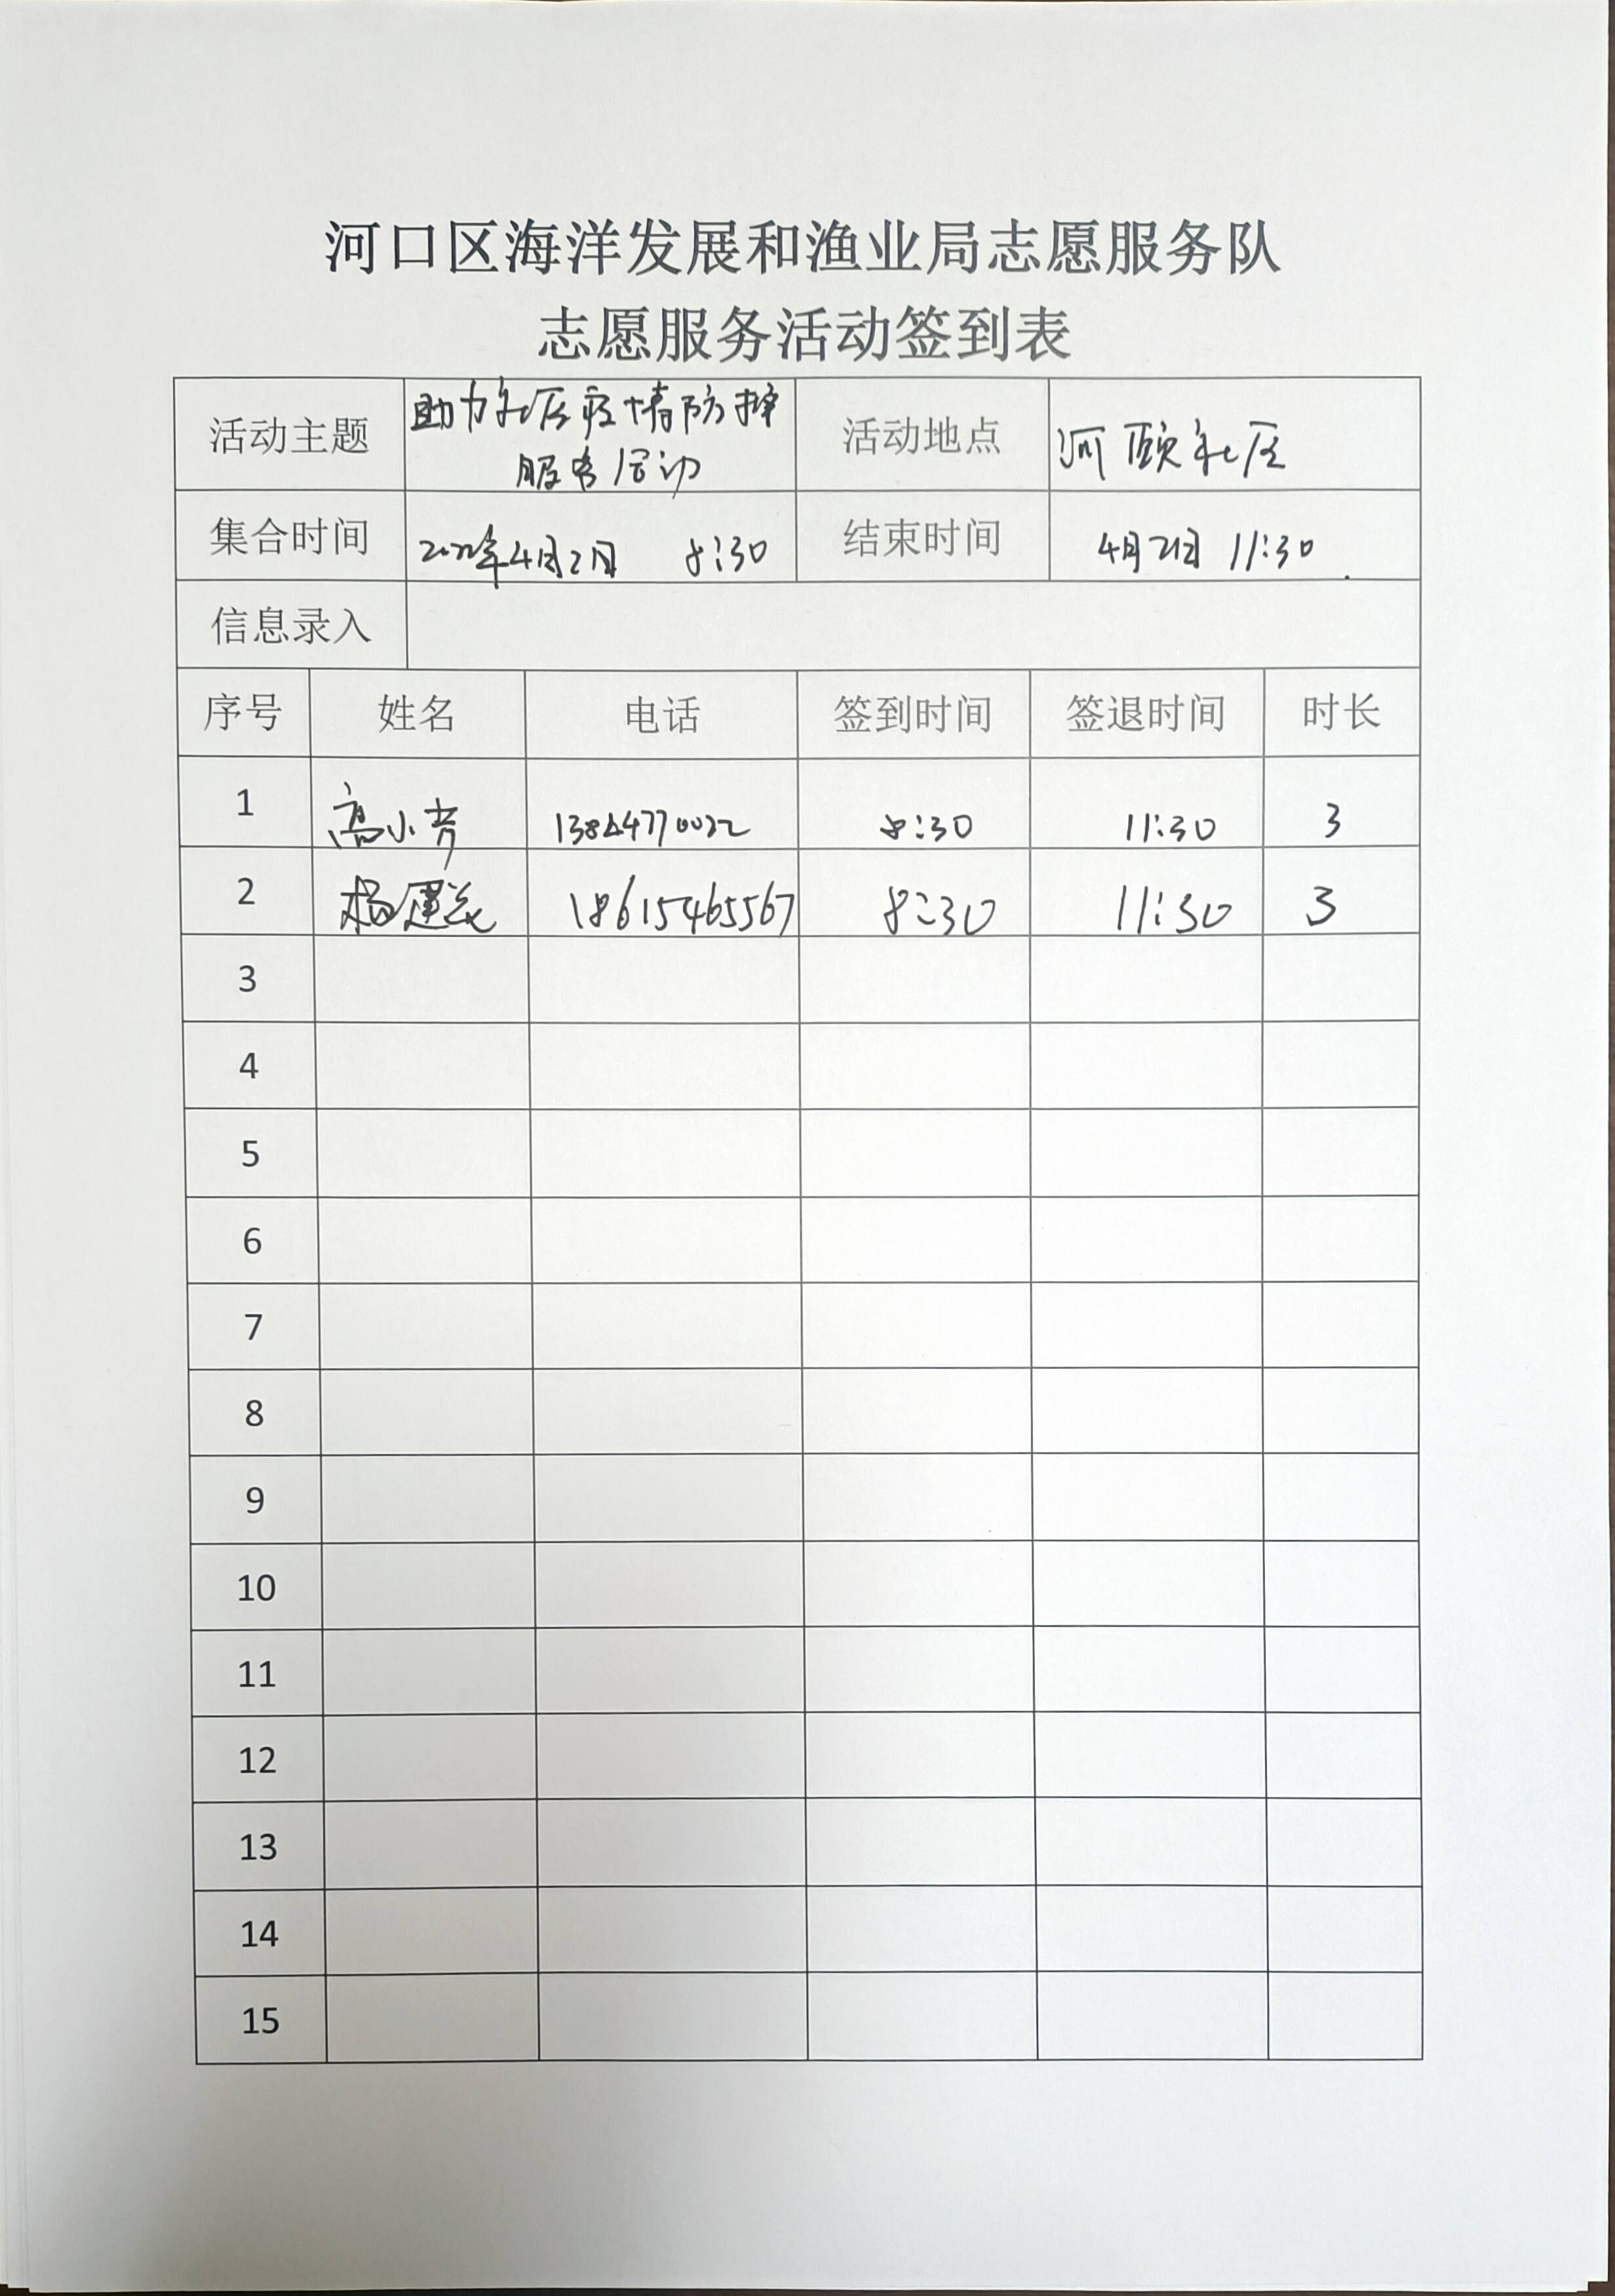 河口区海洋发展和渔业局志愿服务队
志愿服务活动签到表
活动主题 助力社区疫情防控 活动地点 河颐社区
服务活动
集合时间 2022年4月2日 8:30 结束时间 4月2日 11:30
信息录入
序号 姓名 电话 签到时间 签退时间 时长
1 高小芳 13844770022 8:30 11:30 3
2 杨 18615465567 8:30 11:30 3
3
4
5
6
7
8
9
10
11
12
13
14
15